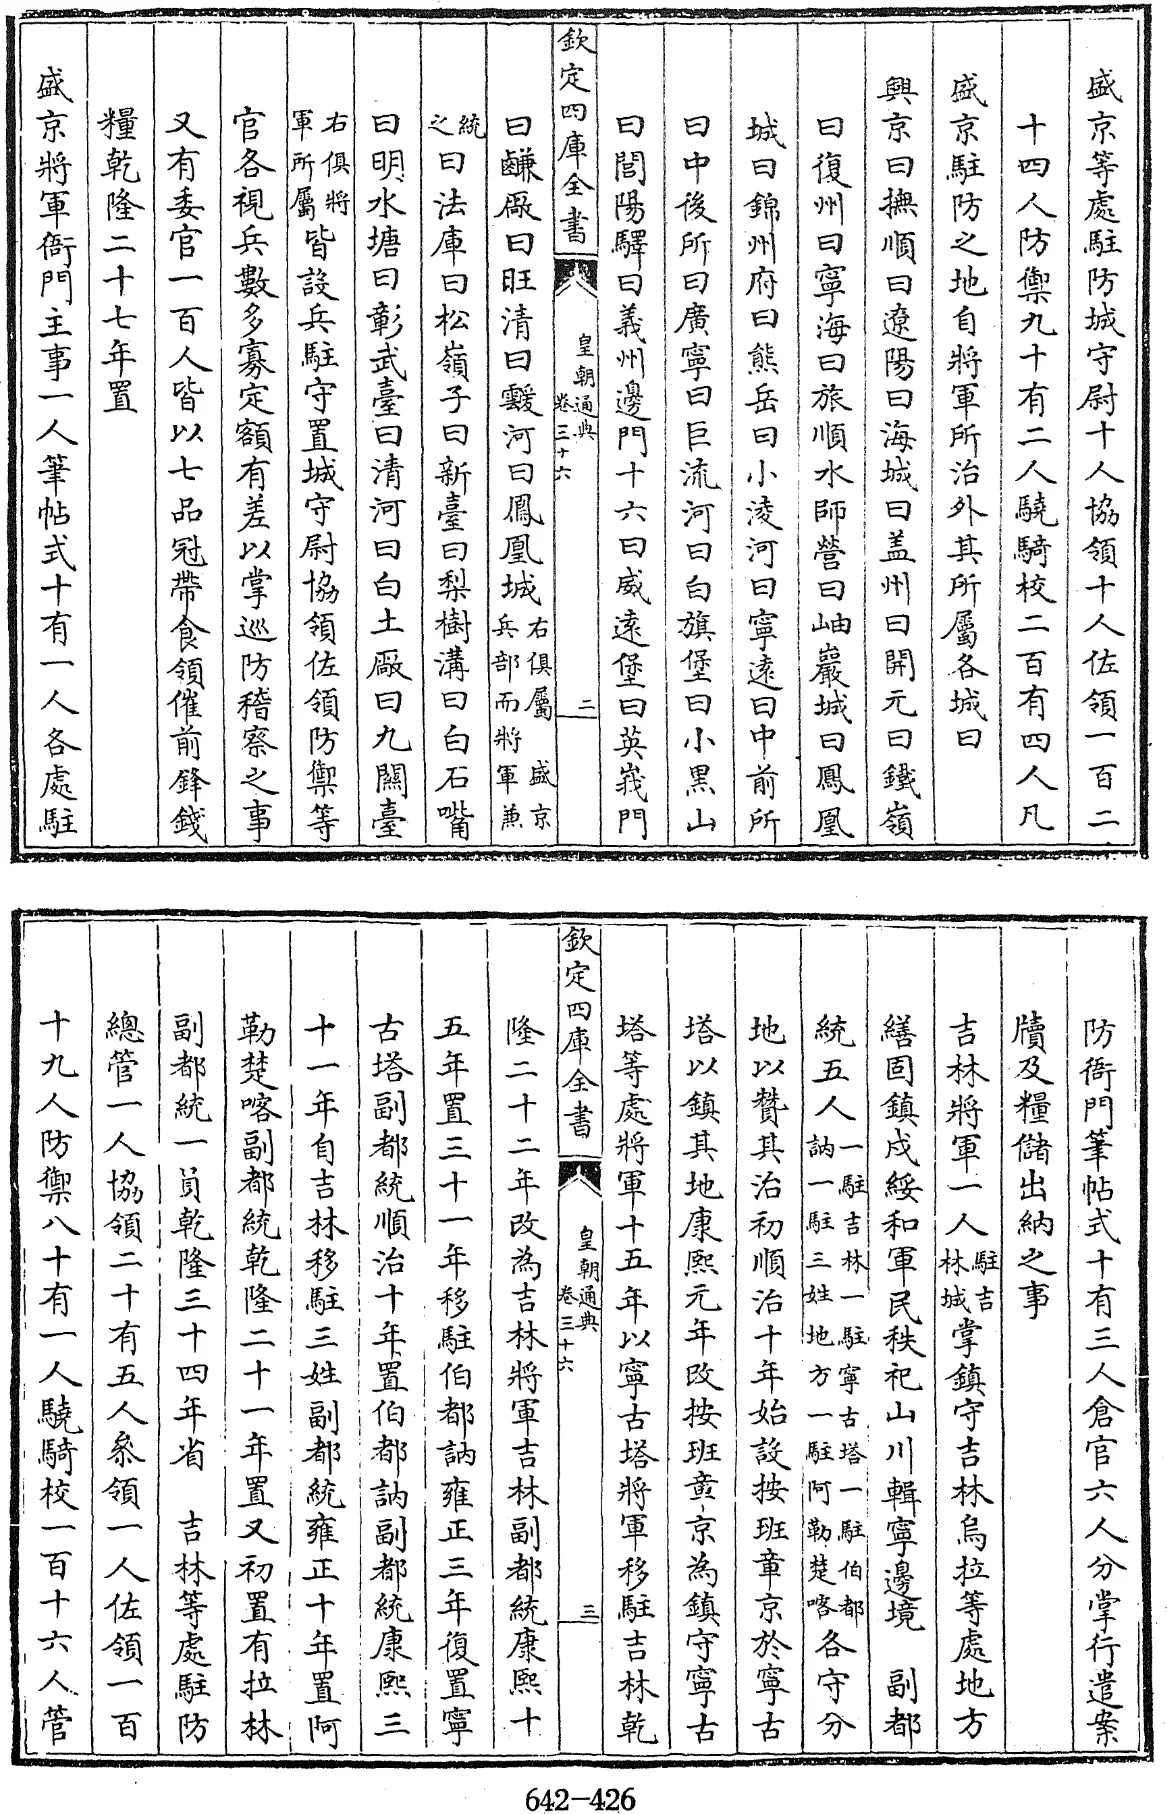 盛京等處駐防城守尉十人協領十人佐領一百二
十四人防禦九十有二人驍騎校二百有四人凡
盛京駐防之地自將軍所治外其所屬各城曰
興京曰撫順曰遼陽曰海城曰盖州曰開元曰鐵嶺
曰復州曰寧海曰旅順水師營曰岫巖城曰鳳凰
城曰錦州府曰熊岳曰小淩河曰寧遠曰中前所
曰中後所曰廣寧曰巨流河曰白旗堡曰小黒山
曰閭陽驛曰義州邊門十六曰威遠堡曰英峩門
欽定四庫全書 皇朝通典 卷三十六 二
曰鹻厰曰旺清曰靉河曰鳳凰城右俱屬 盛京兵部而將軍兼
統之曰法庫曰松嶺子曰新臺曰梨樹溝曰白石嘴
曰明水塘曰彰武臺曰清河曰白土厰曰九關臺
右俱將軍所屬皆設兵駐守置城守尉協領佐領防禦等
官各視兵數多寡定額有差以掌巡防稽察之事
又有委官一百人皆以七品冠帶食領催前鋒錢
糧乾隆二十七年置
盛京將軍衙門主事一人筆帖式十有一人各處駐
防衙門筆帖式十有三人倉官六人分掌行遣案
牘及糧儲出納之事
吉林將軍一人駐吉林城掌鎮守吉林烏拉等處地方
繕固鎮戍綏和軍民秩祀山川輯寧邊境 副都
統五人一駐吉林一駐寧古塔一駐伯都訥一駐三姓地方一駐阿勒楚喀各守分
地以贊其治初順治十年始設按班章京於寧古
塔以鎮其地康熙元年改按班章京為鎮守寧古
塔等處將軍十五年以寧古塔將軍移駐吉林乾
欽定四庫全書 皇朝通典 卷三十六 三
隆二十二年改為吉林將軍吉林副都統康熙十
五年置三十一年移駐伯都訥雍正三年復置寧
古塔副都統順治十年置伯都訥副都統康熙三
十一年自吉林移駐三姓副都統雍正十年置阿
勒楚喀副都統乾隆二十一年置又初置有拉林
副都統一員乾隆三十四年省 吉林等處駐防
總管一人協領二十有五人叅領一人佐領一百
十九人防禦八十有一人驍騎校一百十六人管
642-426